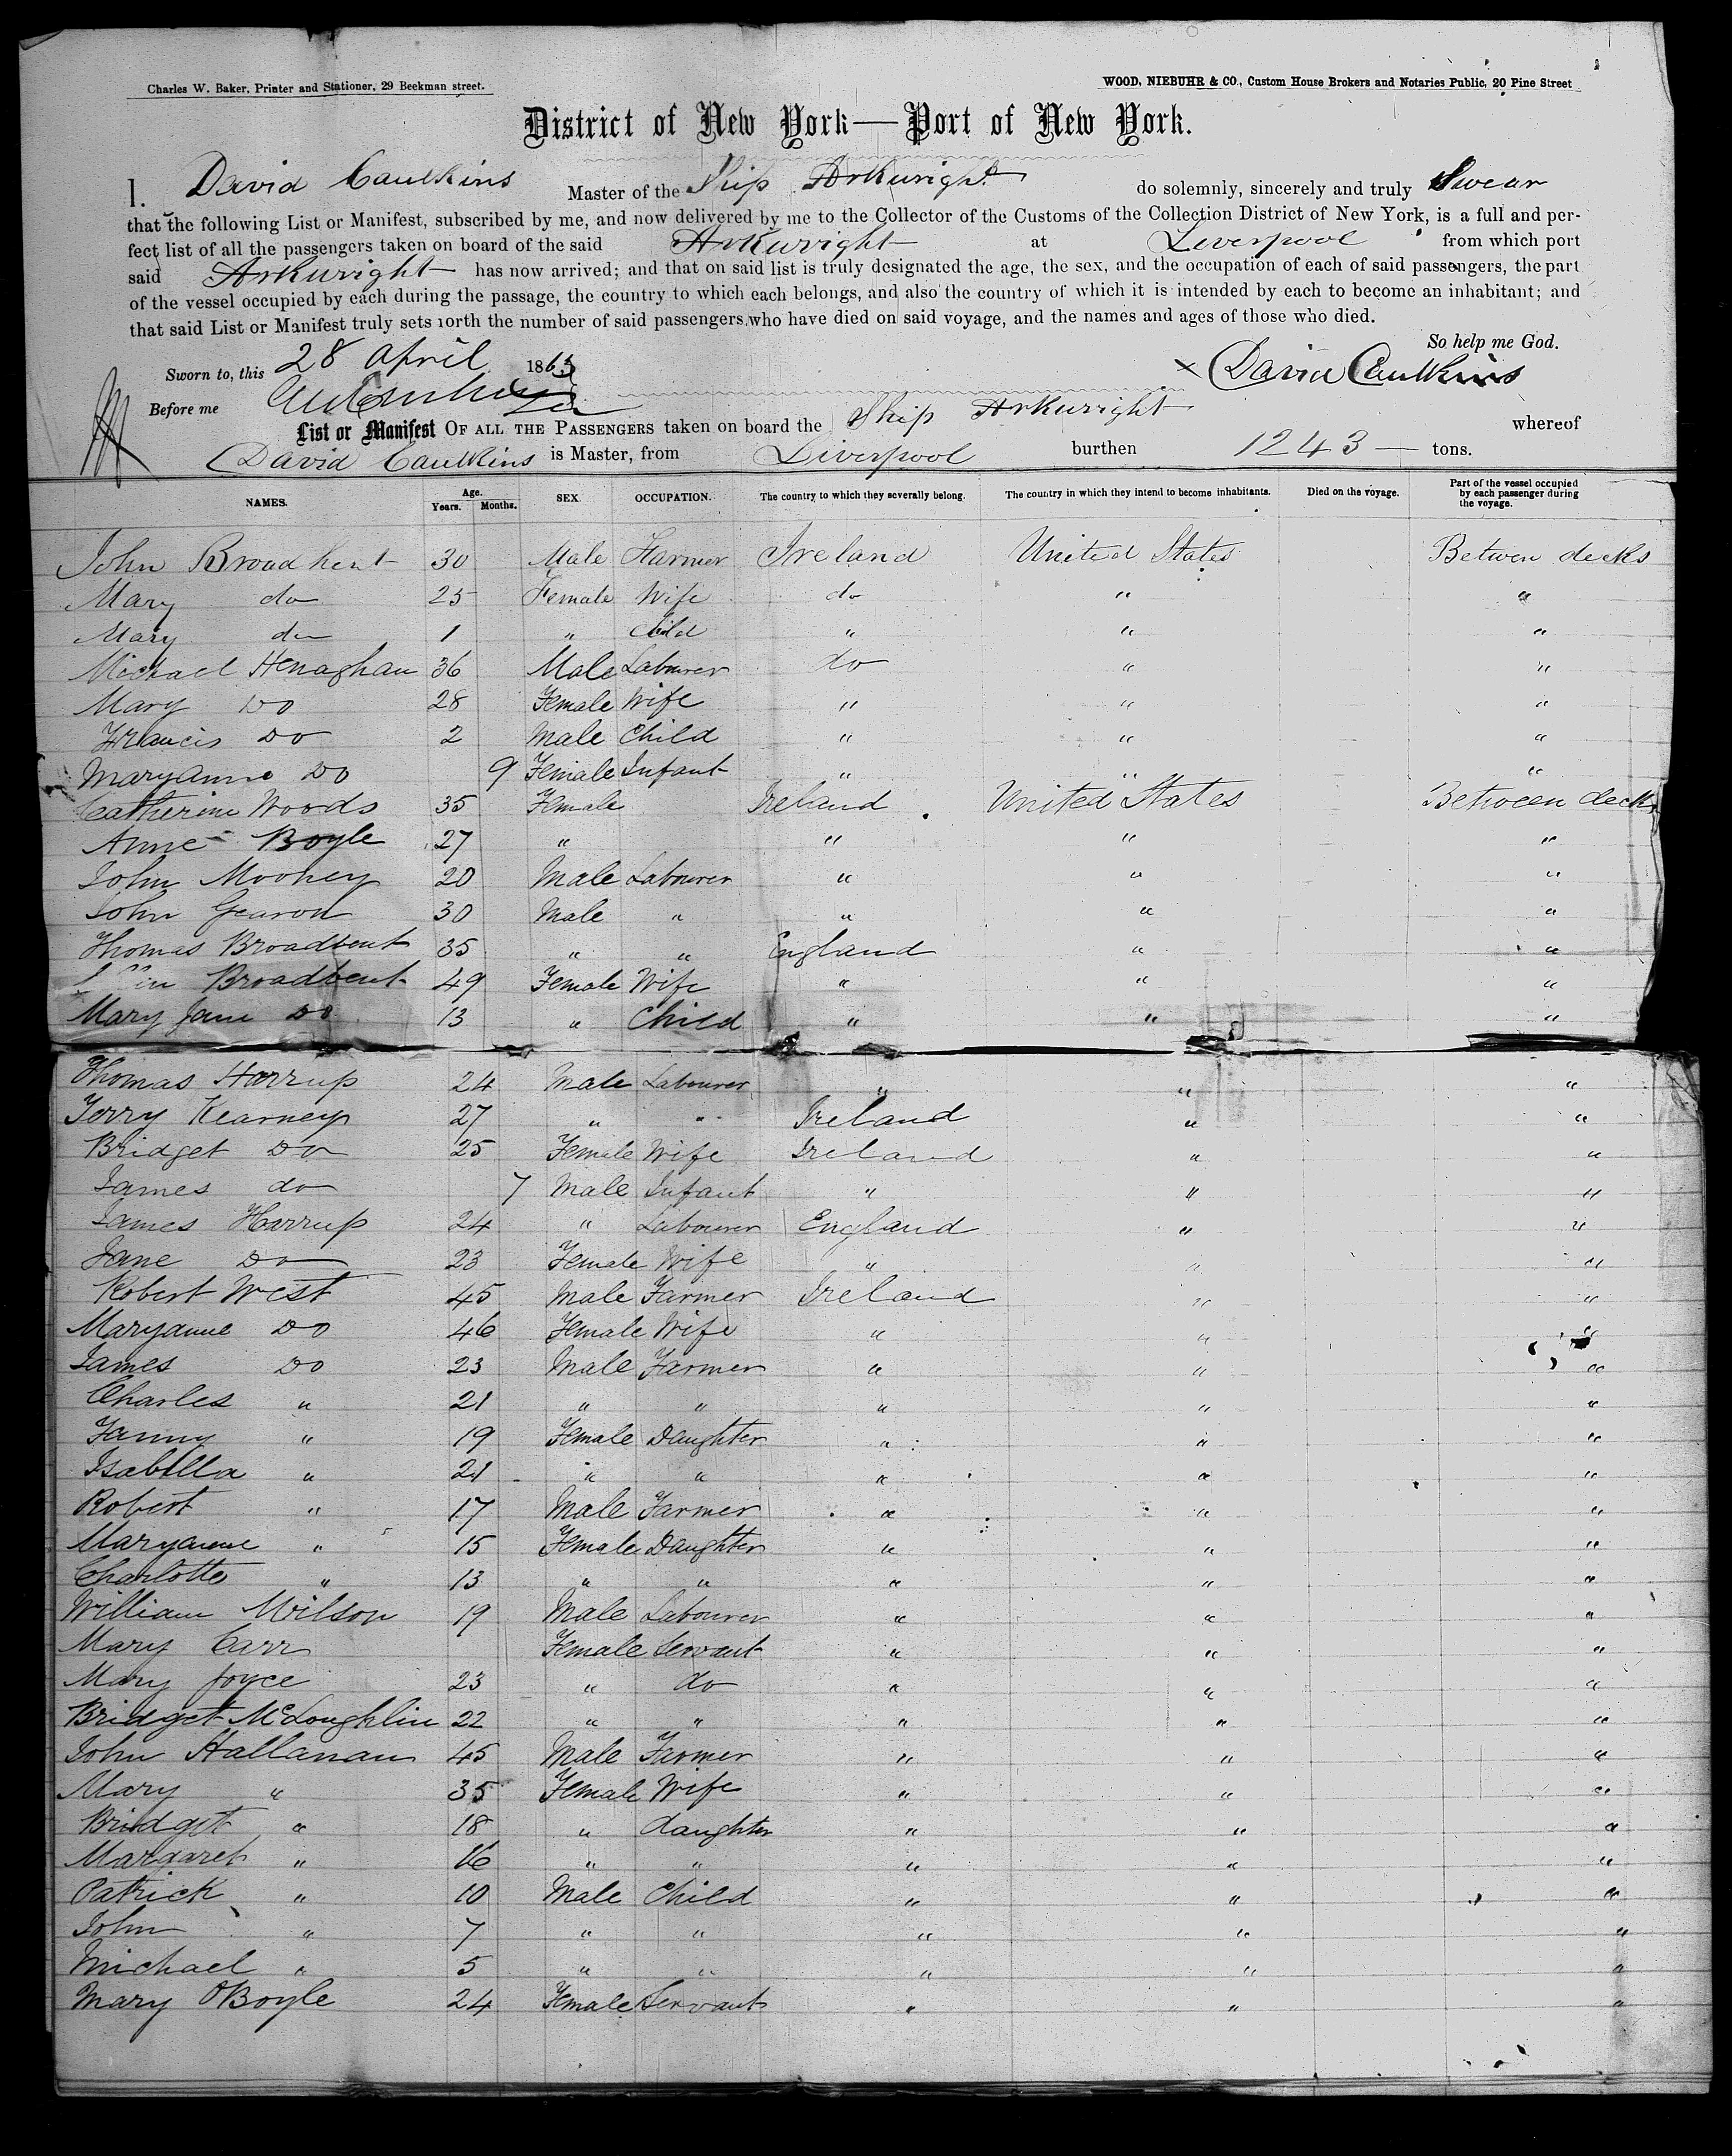 Charles W. Baker, Printer and Stationer, 29 Beekman street. WOOD, NIEBUHR & CO., Custom House Brokers and Notaries Public, 20 Pine Street
District of New York—Port of New York.
I. David Caulkins Master of the Ship Arkwright do solemnly, sincerely and truly Swear
that the following List or Manifest, subscribed by me, and now delivered by me to the Collector of the Customs of the Collection District of New York, is a full and per-
fect list of all the passengers taken on board of the said Arkwright at Liverpool from which port
said Arkwright has now arrived; and that on said list is truly designated the age, the sex, and the occupation of each of said passengers, the part
of the vessel occupied by each during the passage, the country to which each belongs, and also the country of which it is intended by each to become an inhabitant; and
that said List or Manifest truly sets forth the number of said passengers who have died on said voyage, and the names and ages of those who died.
So help me God.
Sworn to, this 28 April 1863 x David Caulkins
Before me
List or Manifest OF ALL THE PASSENGERS taken on board the Ship Arkwright whereof
David Caulkins is Master, from Liverpool burthen 1243 — tons.
NAMES. Age. Years. Months. SEX. OCCUPATION. The country to which they severally belong. The country in which they intend to become inhabitants. Died on the voyage. Part of the vessel occupied by each passenger during the voyage.
John Broadhent 30 Male Farmer Ireland United States Betwen decks
Mary do 25 Female Wife do " "
Mary do 1 " Child " " "
Michael Henaghan 36 Male Labourer do " "
Mary Do 28 Female Wife " " "
Francis Do 2 Male Child " " "
Maryanne Do 9 Female Infant " " "
Catherine Woods 35 Female Ireland United States Between decks
Anne Boyle 27 " " " "
John Mooney 20 Male Labourer " " "
John Gearon 30 Male " " " "
Thomas Broadbent 35 " " England " "
Broadbent 49 Female Wife " " "
Mary Jane Do 13 " Child " " "
Thomas Harrup 24 Male Labourer " " "
Terry Kearney 27 " " Ireland " "
Bridget Do 25 Female Wife Ireland " "
James do 7 Male Infant " " "
James Harrup 24 " Labourer England " "
Jane Do 23 Female Wife " " "
Robert West 45 Male Farmer Ireland " "
Maryanne Do 46 Female Wife " " "
James Do 23 Male Farmer " " "
Charles " 21 " " " " "
Fanny " 19 Female Daughter " " "
Isabella " 21 " " " " "
Robert " 17 Male Farmer " " "
Maryanne " 15 Female Daughter " " "
Charlotte " 13 " " " " "
William Wilson 19 Male Labourer " " "
Mary Carr Female Servant " " "
Mary Joyce 23 " do " " "
Bridget McLoughlin 22 " " " " "
John Hallanan 45 Male Farmer " " "
Mary " 35 Female Wife " " "
Bridget " 18 " daughter " " "
Margaret " 16 " " " " "
Patrick " 10 Male Child " " "
John " 7 " " " " "
Michael " 5 " " " " "
Mary OBoyle 24 Female Servant " " "